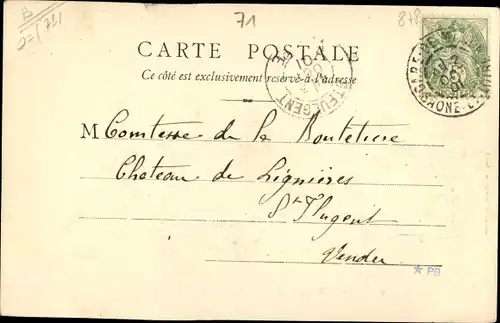 B
71
CARTE POSTALE
Ce côté est exclusivement réservé à l'adresse
M Comtesse de la Boutetiere
Chateau de Lignières
St Fulgent
Vendée
★ PB